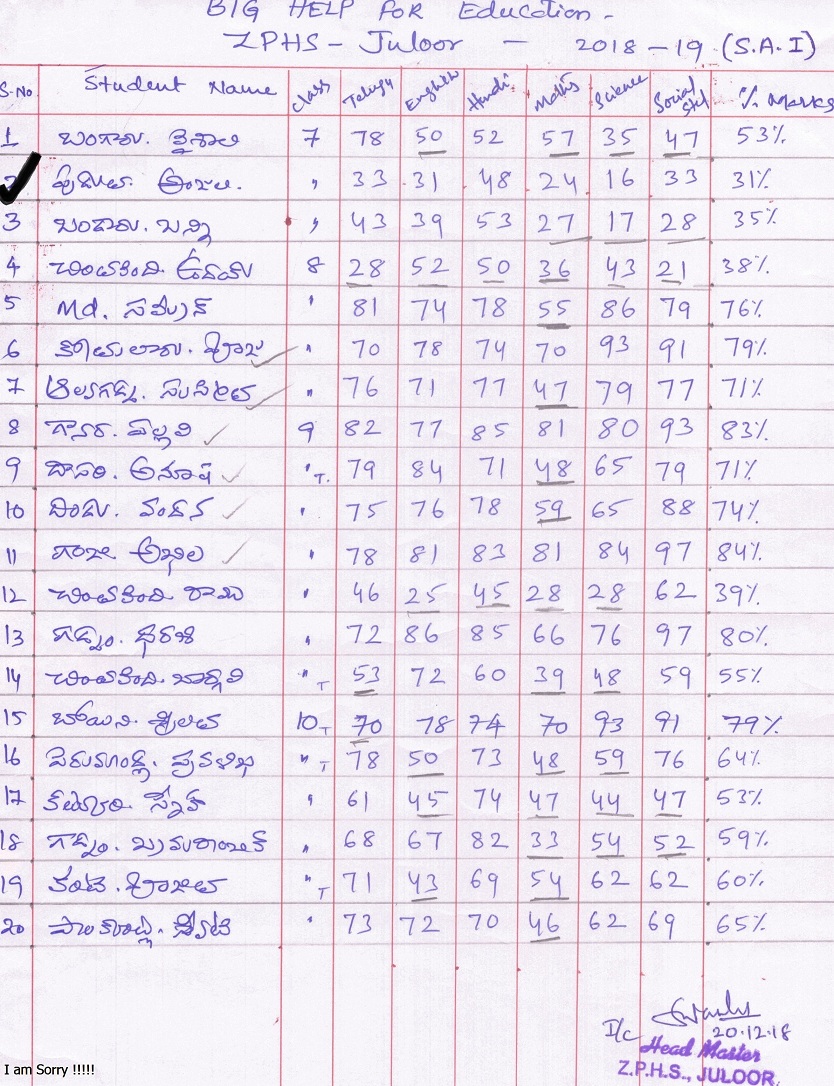 BIG HELP FOR Education -
ZPHS - Juloor - 2018-19 (S.A.I)
S.No Student Name Class Telugu English Hindi Maths Science Social Stud % Marks
1 బంగారు. వైశాలి 7 78 50 52 57 35 47 53%
2 అంజలి. " 33 31 48 24 16 33 31%
3 బండారు. బన్ని " 43 39 53 27 17 28 35%
4 చింతకింది. ఉదయ్ 8 28 52 50 36 43 21 38%
5 Md. సమీర్ " 81 74 78 55 86 79 76%
6 " 70 78 74 70 93 91 79%
7 " 76 71 77 47 79 77 71%
8 పల్లవి 9 82 77 85 81 80 93 83%
9 దాసరి. అనూష " T. 79 84 71 48 65 79 71%
10 దిండు. వందన " 75 76 78 59 65 88 74%
11 గంజి అఖిల " 78 81 83 81 84 97 84%
12 చింతకింది రాము " 46 25 45 28 28 62 39%
13 గడ్డం. ధరణి " 72 86 85 66 76 97 80%
14 చింతకింది. భార్గవి " T 53 72 60 39 48 59 55%
15 బోయిని. శ్రీలత 10 T 70 78 74 70 93 91 79%
16 ప్రవళిక " T 78 50 73 48 59 76 64%
17 " 61 45 74 47 44 47 53%
18 గడ్డం. " 68 67 82 33 54 52 59%
19 " T 71 43 69 54 62 62 60%
20 " 73 72 70 46 62 69 65%
I/c 20.12.18
Head Master
Z.P.H.S., JULOOR.
I am Sorry !!!!!